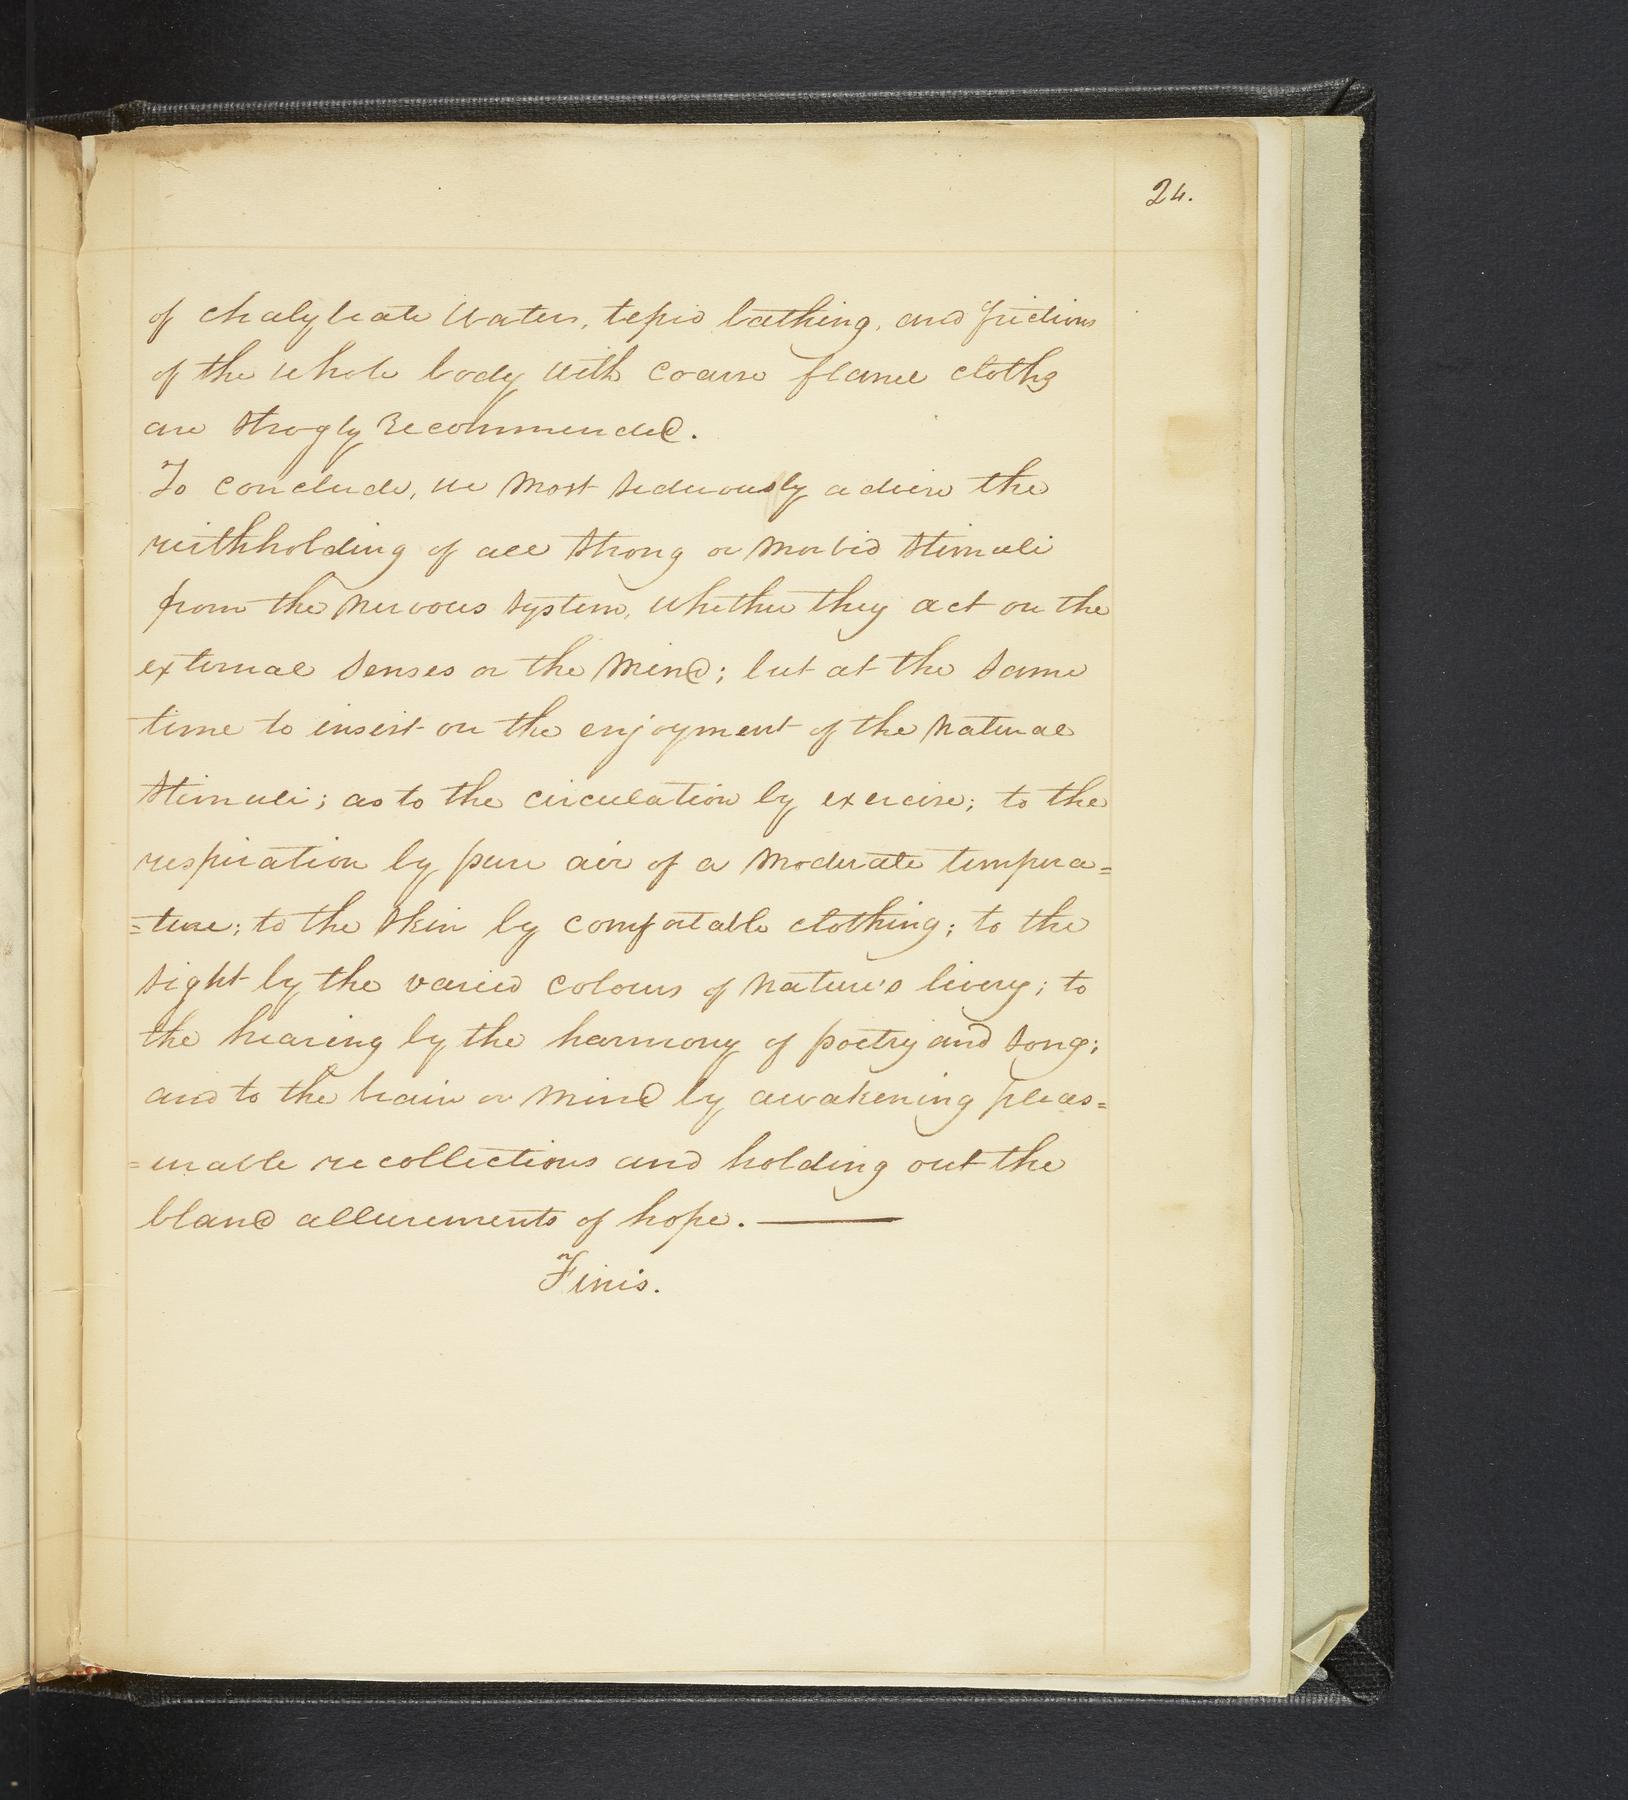 24.
of chalybeate Waters, tepid bathing, and frictions
of the whole body with coarse flanel cloths
are strogly recommended.
To conclude, we most seduously advise the
withholding of all strong or morbid stimuli
from the nervous system, whether they act on the
external senses or the mind; but at the same
time to insist on the enjoyment of the natural
stimuli; as to the circulation by exercise; to the
respiration by pure air of a moderate tempera=
=ture; to the skin by comfortable clothing; to the
sight by the varied colours of nature's livery; to
the hearing by the harmony of poetry and song;
and to the brain or mind by awakening pleas=
=urable recollections and holding out the
bland allurements of hope. —
Finis.